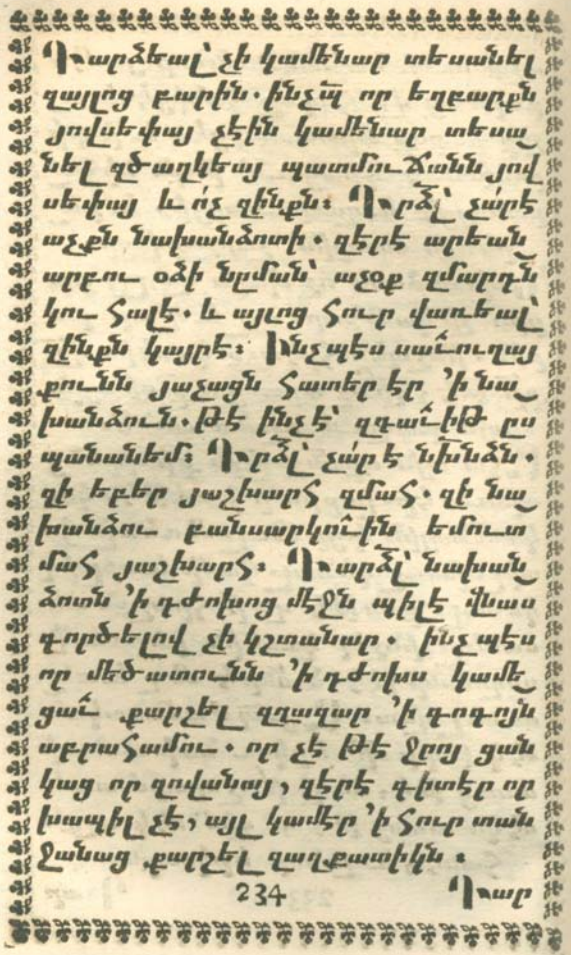 Դարձեալ՝ չի կամենար տեսանել
զայլոց բարին. ինչպ̄ որ եղբարքն
յովսեփայ չէին կամենար տեսա֊
նել զծաղկեայ պատմուճանն յով
սեփայ և ո՛չ զինքն։ Դրձլ՝ չար է
աչքն նախանձոտի. զերէ արեան֊
արբու օձի նըման՝ աչօք զմարդն
կու հալէ. և այլոց հուր վառեալ՝
զինքն կայրէ։ Ինչպէս սաւուղայ
քունն յաչացն հատեր էր ՚ի նա֊
խանձուն. թէ ինչէ՝ զդաւիթ ըս
պանանեմ։ Դրձլ՝ չար է նխնձն.
զի եբեր յաշխարհ զմահ. զի նա֊
խանձու բանսարկուին եմուտ
մահ յաշխարհ։ Դարձլ՝ նախան֊
ձոտն ՚ի դժոխոց մէջն պիլէ վնաս
գործելով չի կշտանար. ինչպէս
որ մեծատունն ՚ի դժոխս կամե֊
ցաւ քարշել զղազար ՚ի գոգոյն
աբրահամու. որ չէ թէ ջրոյ ցան
կաց որ զովանայ, զերէ գիտեր որ
խապիլ չէ, այլ կամէր ՚ի հուր տան
ջանաց քարշել զաղքատիկն։
234 Դար